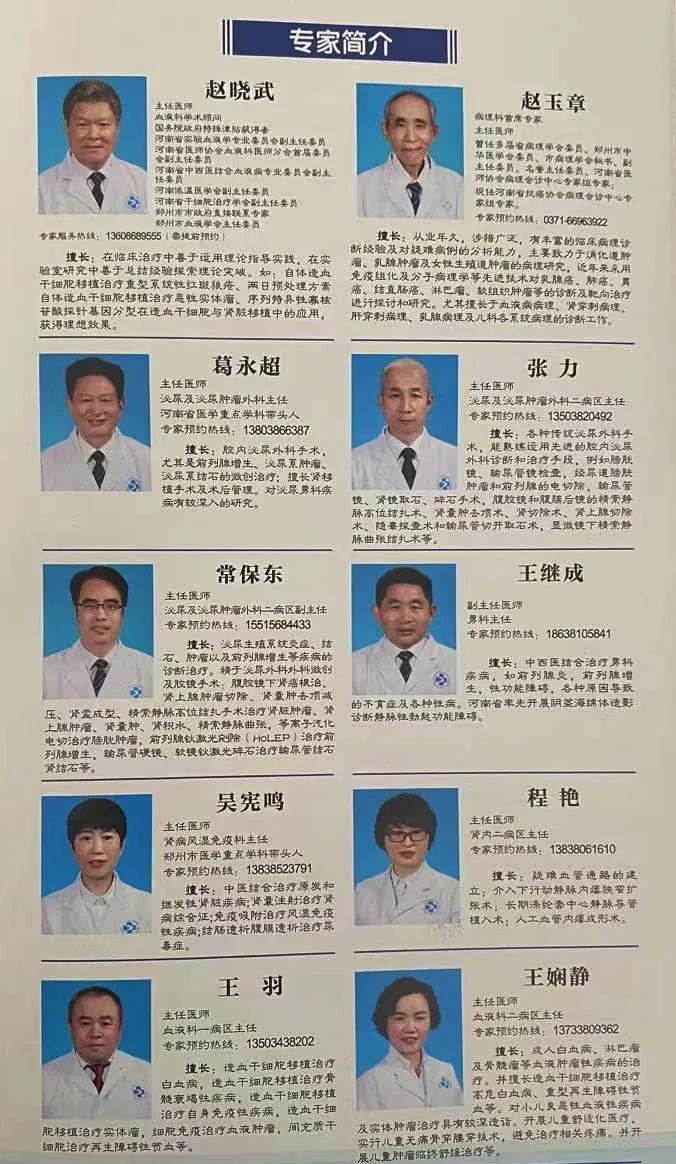 专家简介
赵晓武
主任医师
血液科学术顾问
国务院政府特殊津贴获得者
河南省实验血液学专业委员会副主任委员
河南省医师协会血液科医师分会首届委员
会副主任委员
河南省中西医结合血液病专业委员会副主
任委员
河南低温医学会副主任委员
河南省干细胞治疗学会副主任委员
郑州市市政府直接联系专家
郑州市血液学会主任委员
专家服务热线：13608689555（需提前预约）
擅长：在临床治疗中善于运用理论指导实践，在实
验室研究中善于总结经验探索理论突破。如：自体造血
干细胞移植治疗重型系统性红斑狼疮、两日预处理方案
自体造血干细胞移植治疗恶性实体瘤、序列特异性寡核
苷酸探针基因分型在造血干细胞与肾脏移植中的应用，
获得理想效果。
赵玉章
病理科首席专家
主任医师
曾任多届省病理学会委员、郑州市中
华医学会委员、市病理学会秘书、副
主任委员、名誉主任委员、河南省医
师协会病理会诊中心专家组专家；
现任河南省抗癌协会病理会诊中心专
家组专家。
专家预约热线：0371-66963922
擅长：从业年久，涉猎广泛，有丰富的临床病理诊
断经验及对疑难病例的分析能力，主要致力于消化道肿
瘤、乳腺肿瘤及女性生殖道肿瘤的病理研究，近年来采用
免疫组化及分子病理学等先进技术对乳腺癌、肺癌、胃
癌、结直肠癌、淋巴瘤、软组织肿瘤等的诊断及靶向治疗
进行探讨和研究。尤其擅长于血液病病理、肾穿刺病理、
肝穿刺病理、乳腺病理及儿科各系统病理的诊断工作。
葛永超
主任医师
泌尿及泌尿肿瘤外科主任
河南省医学重点学科带头人
专家预约热线：13803866387
擅长：腔内泌尿外科手术，
尤其是前列腺增生、泌尿系肿瘤、
泌尿系结石的微创治疗；擅长肾移
植手术及术后管理。对泌尿男科疾
病有较深入的研究。
张 力
主任医师
泌尿及泌尿肿瘤外科二病区主任
专家预约热线：13503820492
擅长：各种传统泌尿外科手
术，能熟练运用先进的腔内泌尿
外科诊断和治疗手段，例如膀胱
镜、输尿管镜检查，经尿道膀胱
肿瘤和前列腺的电切除，输尿管
镜、肾镜取石、碎石手术，腹腔镜和腹膜后镜的精索静
脉高位结扎术、肾囊肿去顶术、肾切除术、肾上腺切除
术、隐睾探查术和输尿管切开取石术，显微镜下精索静
脉曲张结扎术等。
常保东
主任医师
泌尿及泌尿肿瘤外科二病区副主任
专家预约热线：15515684433
擅长：泌尿生殖系统炎症、结
石、肿瘤以及前列腺增生等疾病的
诊断治疗。精于泌尿外科外科微创
及腔镜手术，腹腔镜下肾癌根治、
肾上腺肿瘤切除、肾囊肿去顶减
压、肾盂成型、精索静脉高位结扎手术治疗肾脏肿瘤、肾
上腺肿瘤、肾囊肿、肾积水、精索静脉曲张，等离子汽化
电切治疗膀胱肿瘤，前列腺钬激光剜除（HoLEP）治疗前
列腺增生，输尿管硬镜、软镜钬激光碎石治疗输尿管结石
肾结石等。
王继成
副主任医师
男科主任
专家预约热线：18638105841
擅长：中西医结合治疗男科
疾病，如前列腺炎，前列腺增
生，性功能障碍，各种原因导致
的不育症及各种性病。河南省率先开展阴茎海绵体造影
诊断静脉性勃起功能障碍。
吴宪鸣
主任医师
肾病风湿免疫科主任
郑州市医学重点学科带头人
专家预约热线：13838523791
擅长：中医结合治疗原发和
继发性肾脏疾病；肾囊注射治疗肾
病综合证；免疫吸附治疗风湿免疫
性疾病；结肠透析腹膜透析治疗尿
毒症。
程 艳
主任医师
肾内二病区主任
专家预约热线：13838061610
擅长：疑难血管通路的建
立；介入下行动静脉内瘘狭窄扩
张术；长期涤纶套中心静脉导管
植入术；人工血管内瘘成形术。
王 羽
主任医师
血液科一病区主任
专家预约热线：13503438202
擅长：造血干细胞移植治疗
白血病，造血干细胞移植治疗骨
髓衰竭性疾病，造血干细胞移植
治疗自身免疫性疾病，造血干细
胞移植治疗实体瘤，细胞免疫治疗血液肿瘤，间充质干
细胞治疗再生障碍性贫血等。
王娴静
主任医师
血液科二病区主任
专家预约热线：13733809362
擅长：成人白血病、淋巴瘤
及骨髓瘤等血液肿瘤性疾病的治
疗。并擅长造血干细胞移植治疗
高危白血病、重型再生障碍性贫
血等。对小儿良恶性血液性疾病
及实体肿瘤治疗具有较深造诣。开展儿童舒适化医疗，
实行儿童无痛骨穿腰穿技术，避免治疗相关疼痛。并开
展儿童肿瘤临终舒缓治疗等。